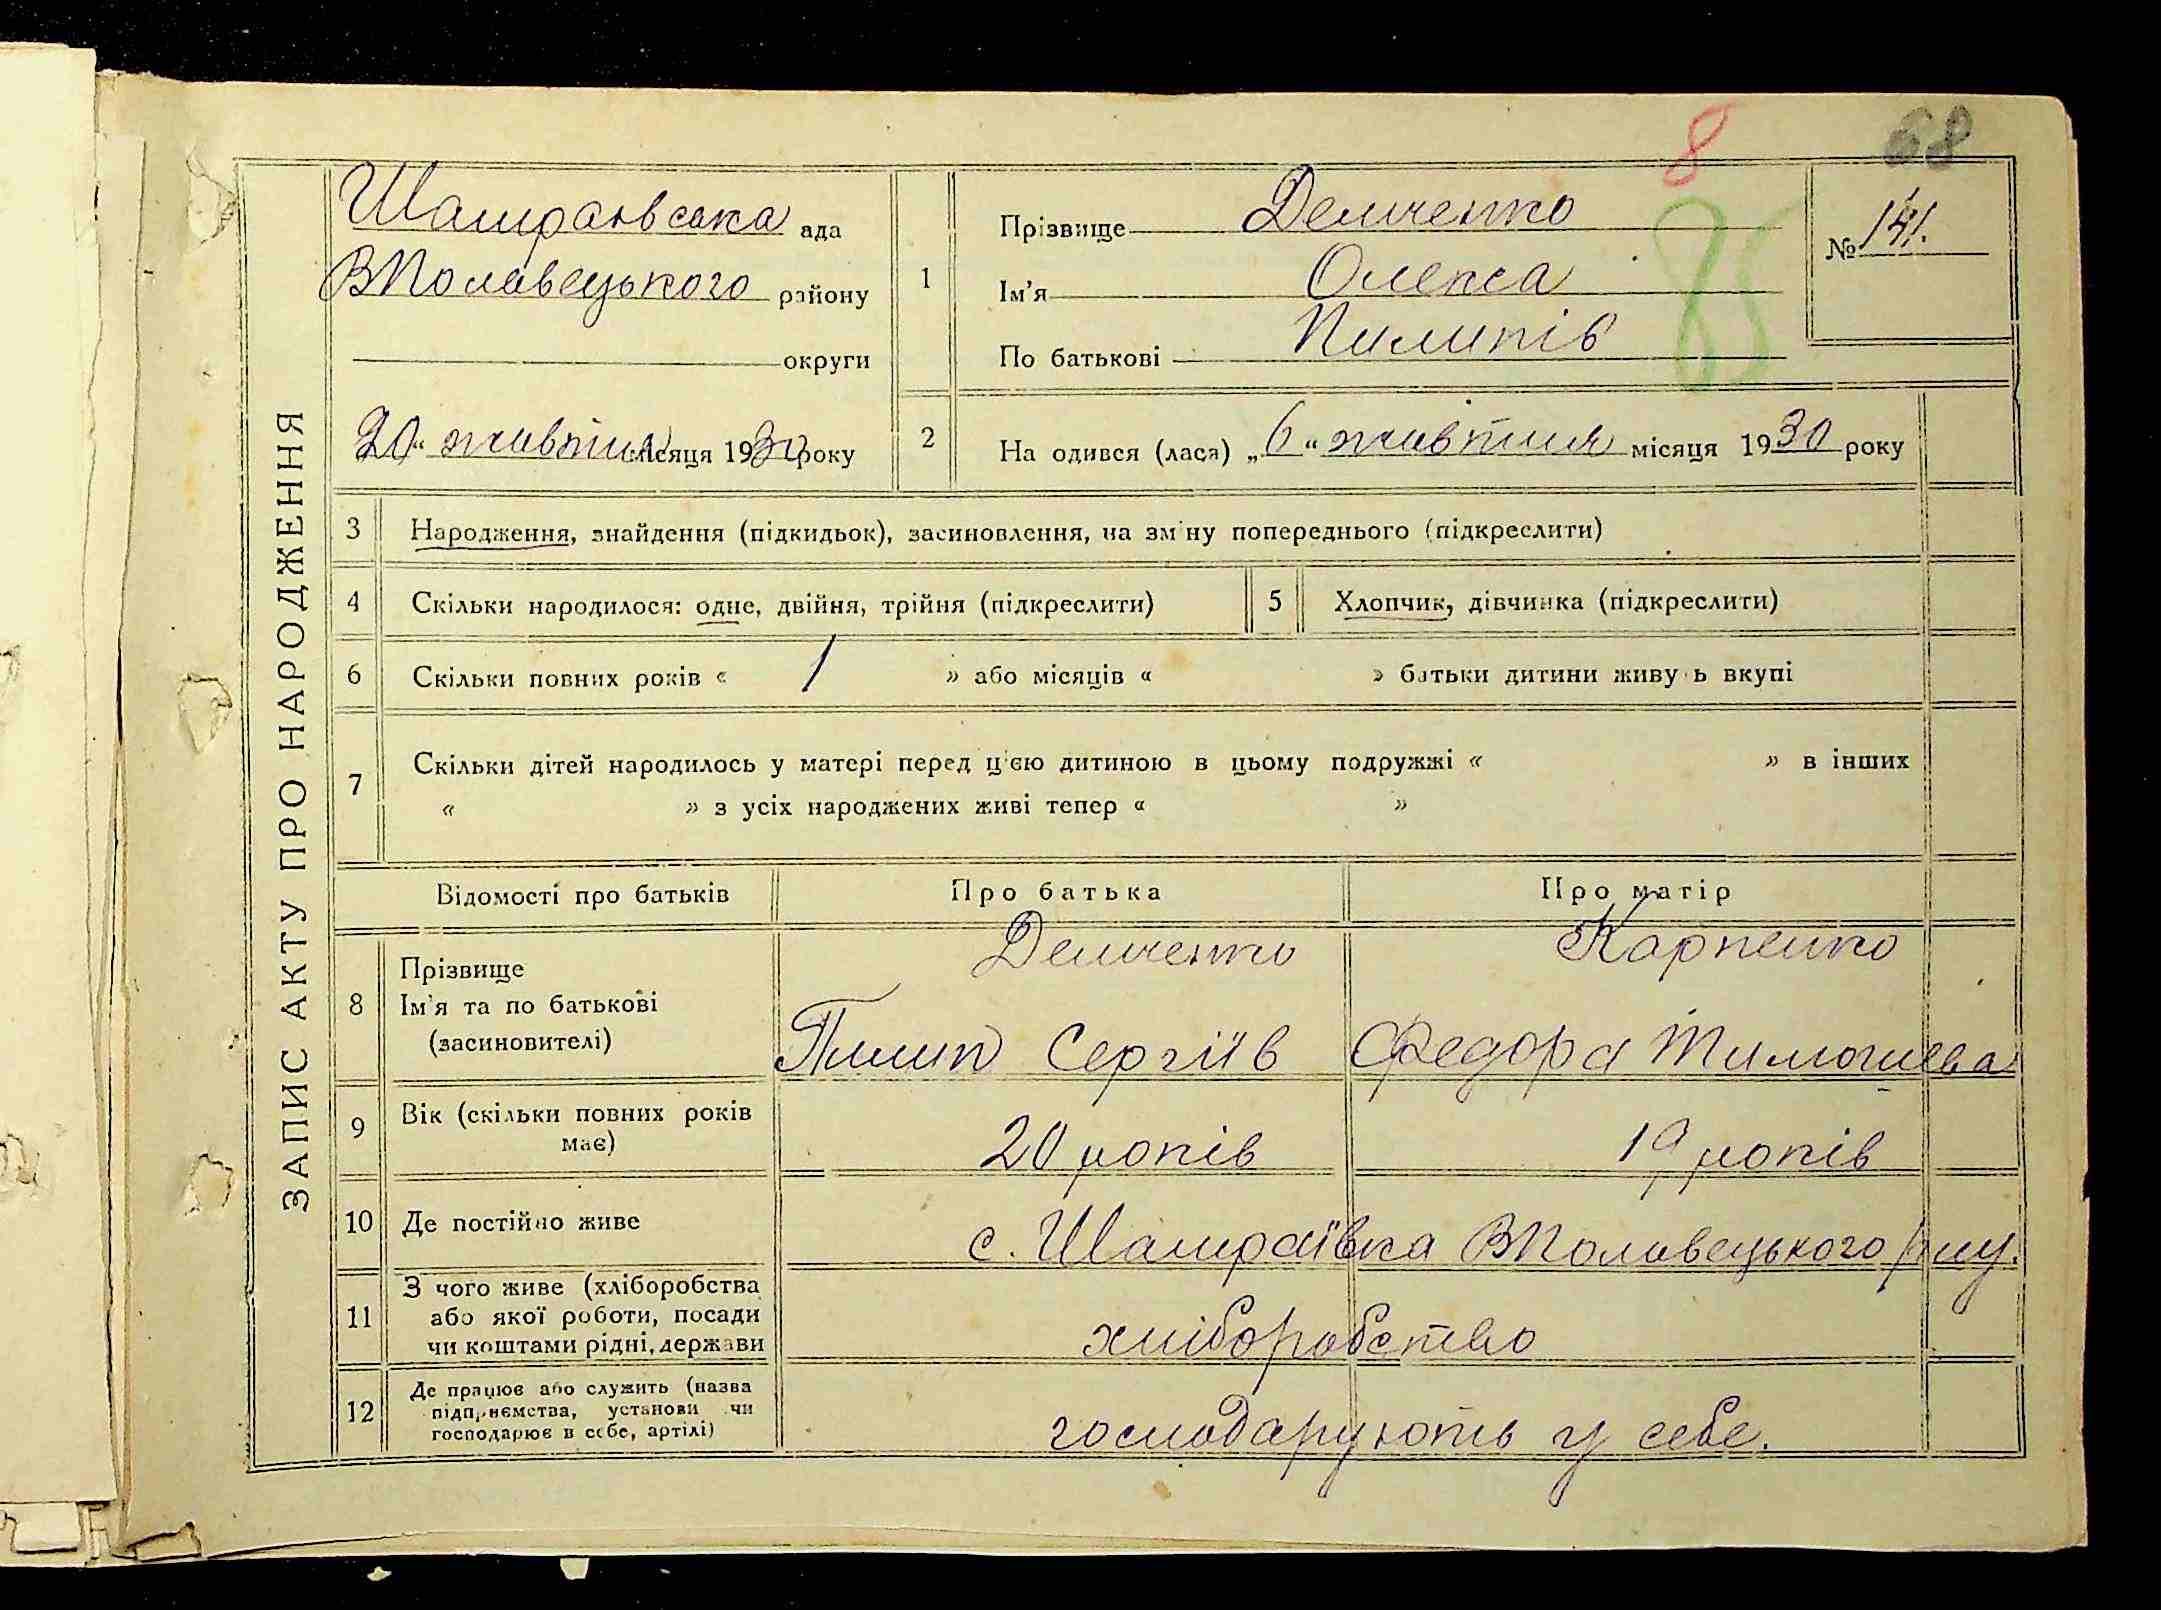 8
68
Шамраївська ада
ВПоловецького району
округи
20 “ жовтня місяця 1930 року
ЗАПИС АКТУ ПРО НАРОДЖЕННЯ
1
Прізвище Демченко
Ім'я Олекса
По батькові Пилипів
№
2
На одився (лася) „ 6 “ жовтня місяця 1930 року
3 Народження, знайдення (підкидьок), засиновлення, на зміну попереднього (підкреслити)
4 Скільки народилося: одне, двійня, трійня (підкреслити)
5 Хлопчик, дівчинка (підкреслити)
6 Скільки повних років « 1 » або місяців « » батьки дитини живу ь вкупі
7 Скільки дітей народилось у матері перед цією дитиною в цьому подружжі « » в інших
« » з усіх народжених живі тепер « »
Відомості про батьків Про батька Про матір
8 Прізвище Демченко Карпенко
Ім'я та по батькові
(засиновителі) Пилип Сергіїв Федора Тимошева
9 Вік (скільки повних років
має) 20 років 19 років
10 Де постійно живе с. Шамраївка ВПоловецького р-ну.
11 З чого живе (хліборобства
або якої роботи, посади
чи коштами рідні, держави хліборобство
12 Де працює або служить (назва
підприємства, установи чи
господарює в себе, артілі) господарують у себе.